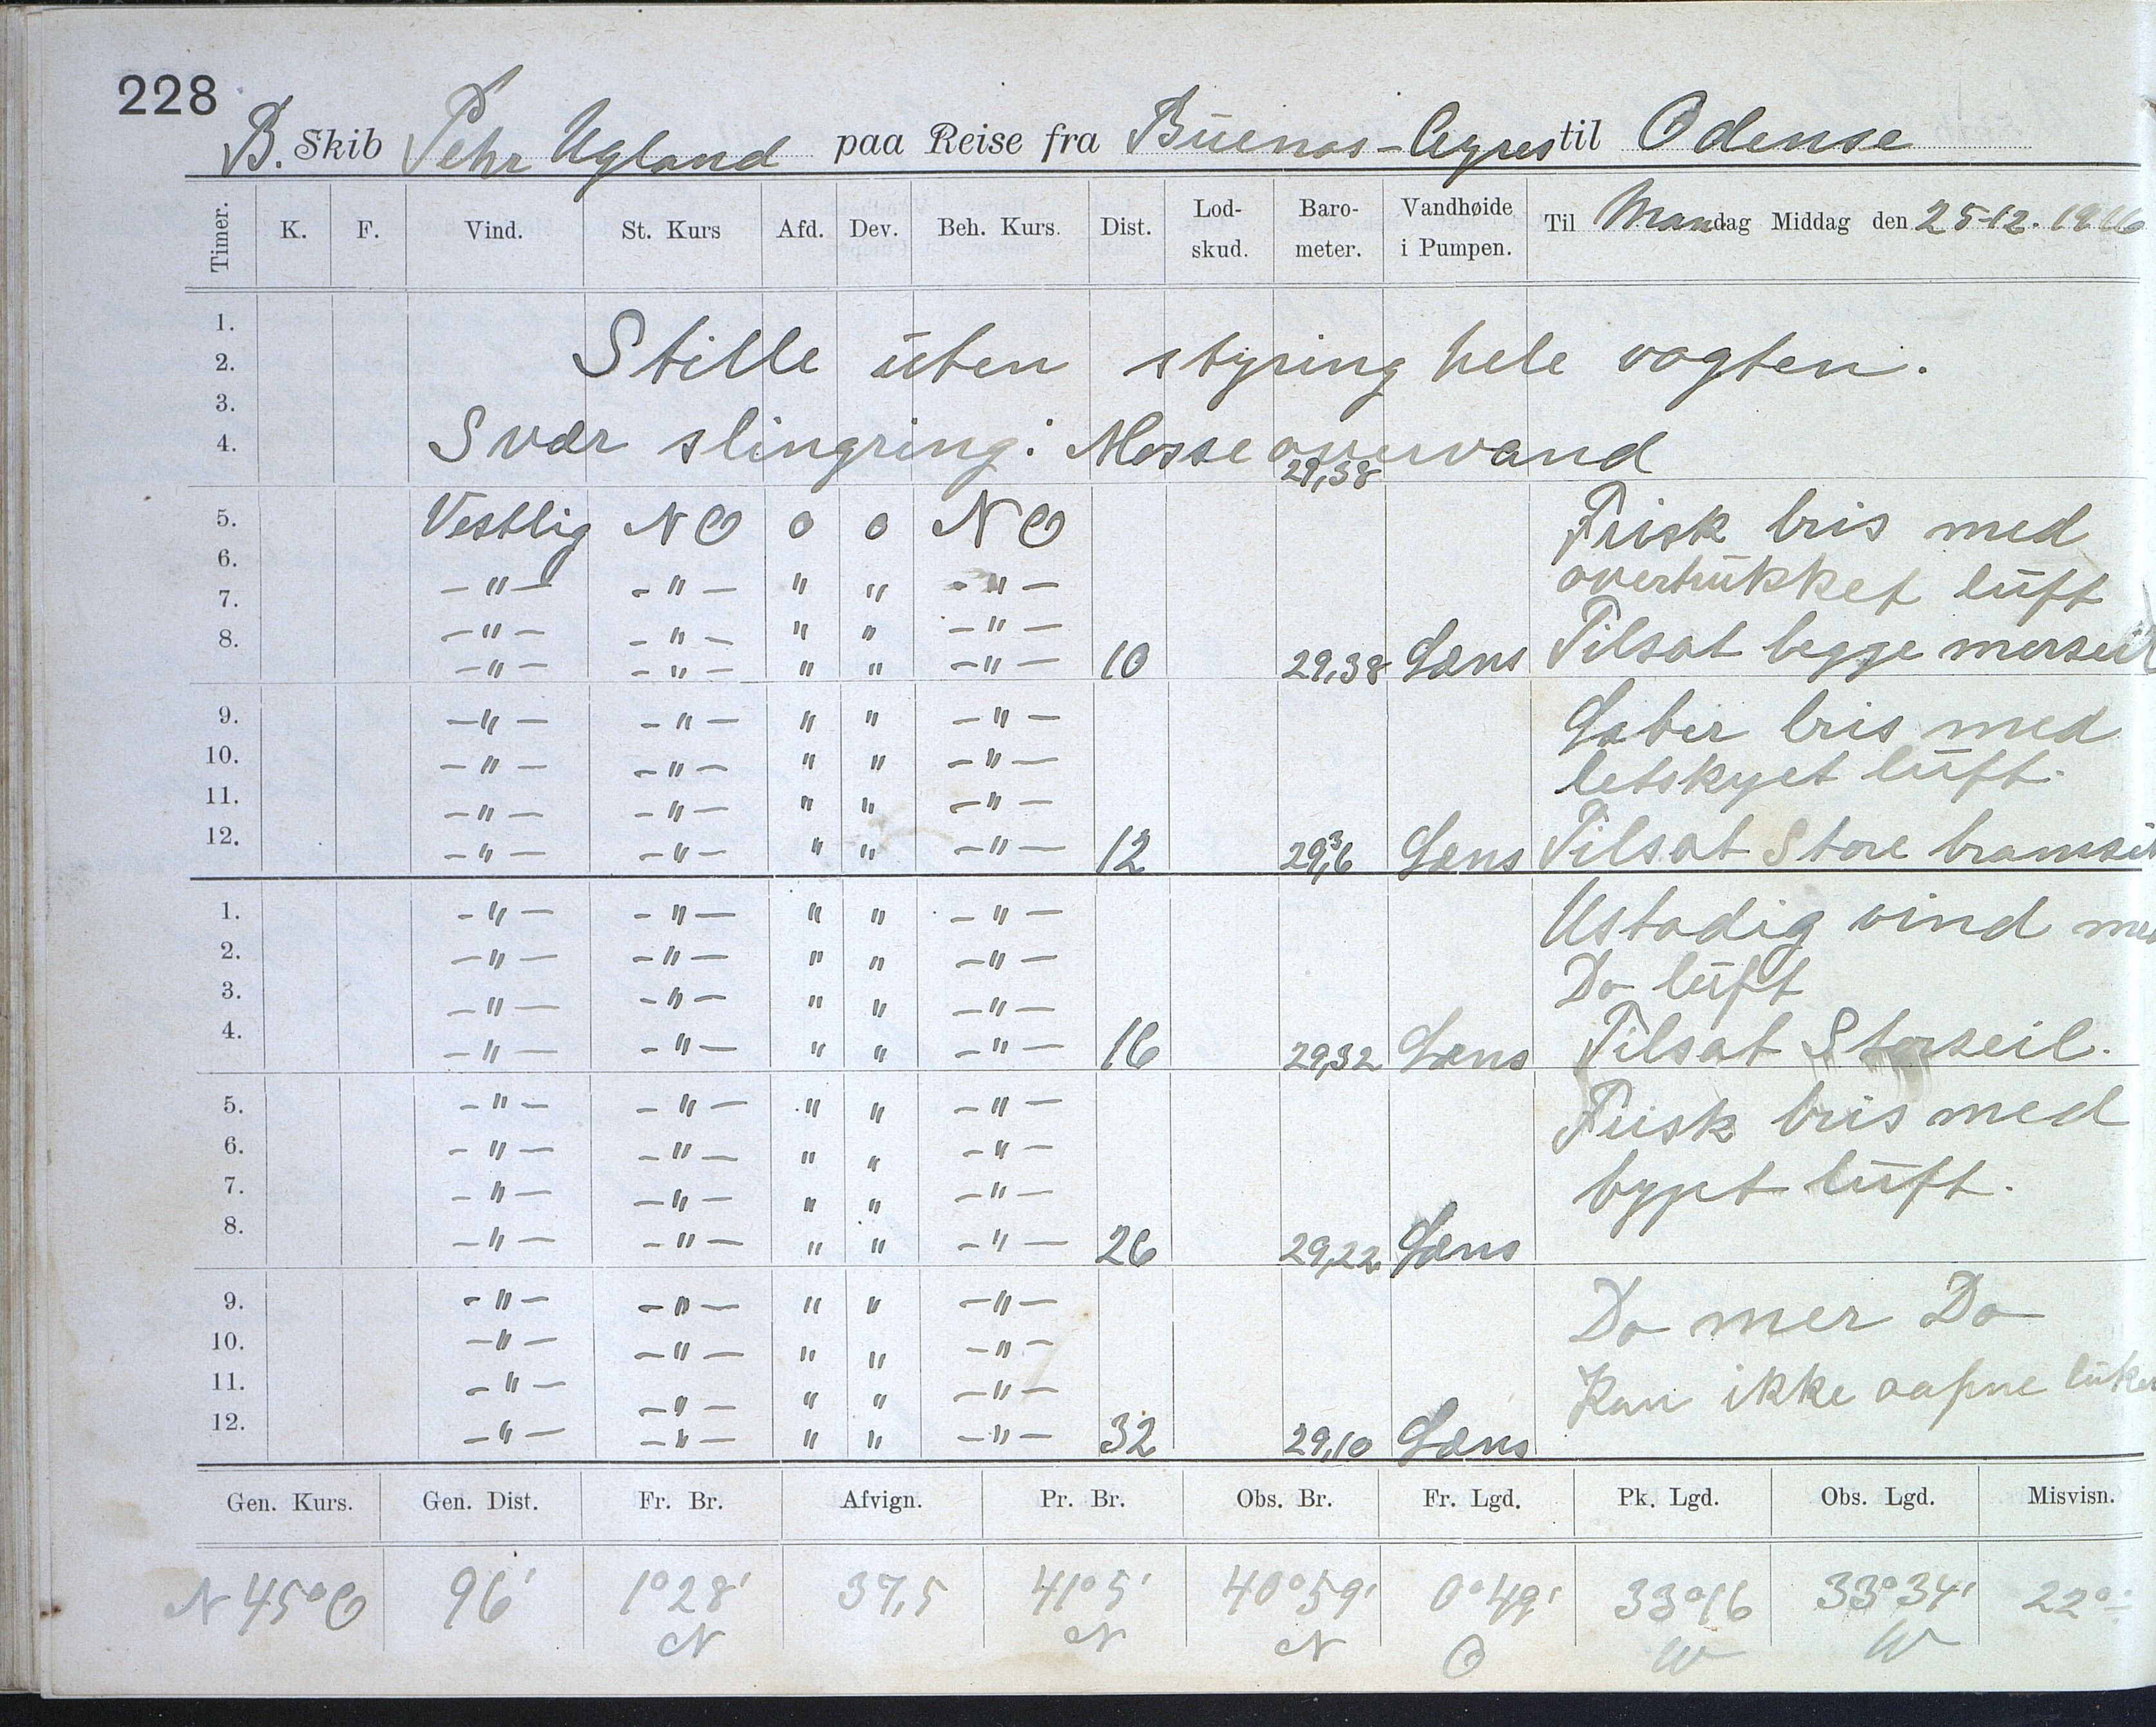 228
B. Skib Pehr Ugland paa Reise fra Buenos-Ayres til Odense
Timer. K. F. Vind. St. Kurs Afd. Dev. Beh. Kurs. Dist. Lod-skud. Baro-meter. Vandhøide i Pumpen. Til Mandag Middag den 25-12. 1916
1.
2. Stille uten styring hele vagten.
3.
4. Svær slingring. Masse overvand 29,38
5. Vestlig NO o o NO Frisk bris med
6. -"- -"- " " -"- overtrukket luft
7. -"- -"- " " -"-
8. -"- -"- " " -"- 10 29,38 Læns Tilsat begge merseil
9. -"- -"- " " -"- Laber bris med
10. -"- -"- " " -"- letskyet luft.
11. -"- -"- " " -"-
12. -"- -"- " " -"- 12 29,36 Læns Tilsat Store bramseil
1. -"- -"- " " -"- Ustadig vind med
2. -"- -"- " " -"- Do luft
3. -"- -"- " " -"-
4. -"- -"- " " -"- 16 29,32 Læns Tilsat Storseil.
5. -"- -"- " " -"- Frisk bris med
6. -"- -"- " " -"-
7. -"- -"- " " -"- byget luft.
8. -"- -"- " " -"- 26 29,22 Læns
9. -"- -"- " " -"- Do mer Do
10. -"- -"- " " -"-
11. -"- -"- " " -"- Kan ikke aapne
12. -"- -"- " " -"- 32 29,10 Læns
Gen. Kurs. Gen. Dist. Fr. Br. Afvign. Pr. Br. Obs. Br. Fr. Lgd. Pk. Lgd. Obs. Lgd. Misvisn.
N 45° O 96' 1° 28' 37,5 41° 5' 40° 59' 0° 49' 33° 16 33° 34' 22°
N N N O W W